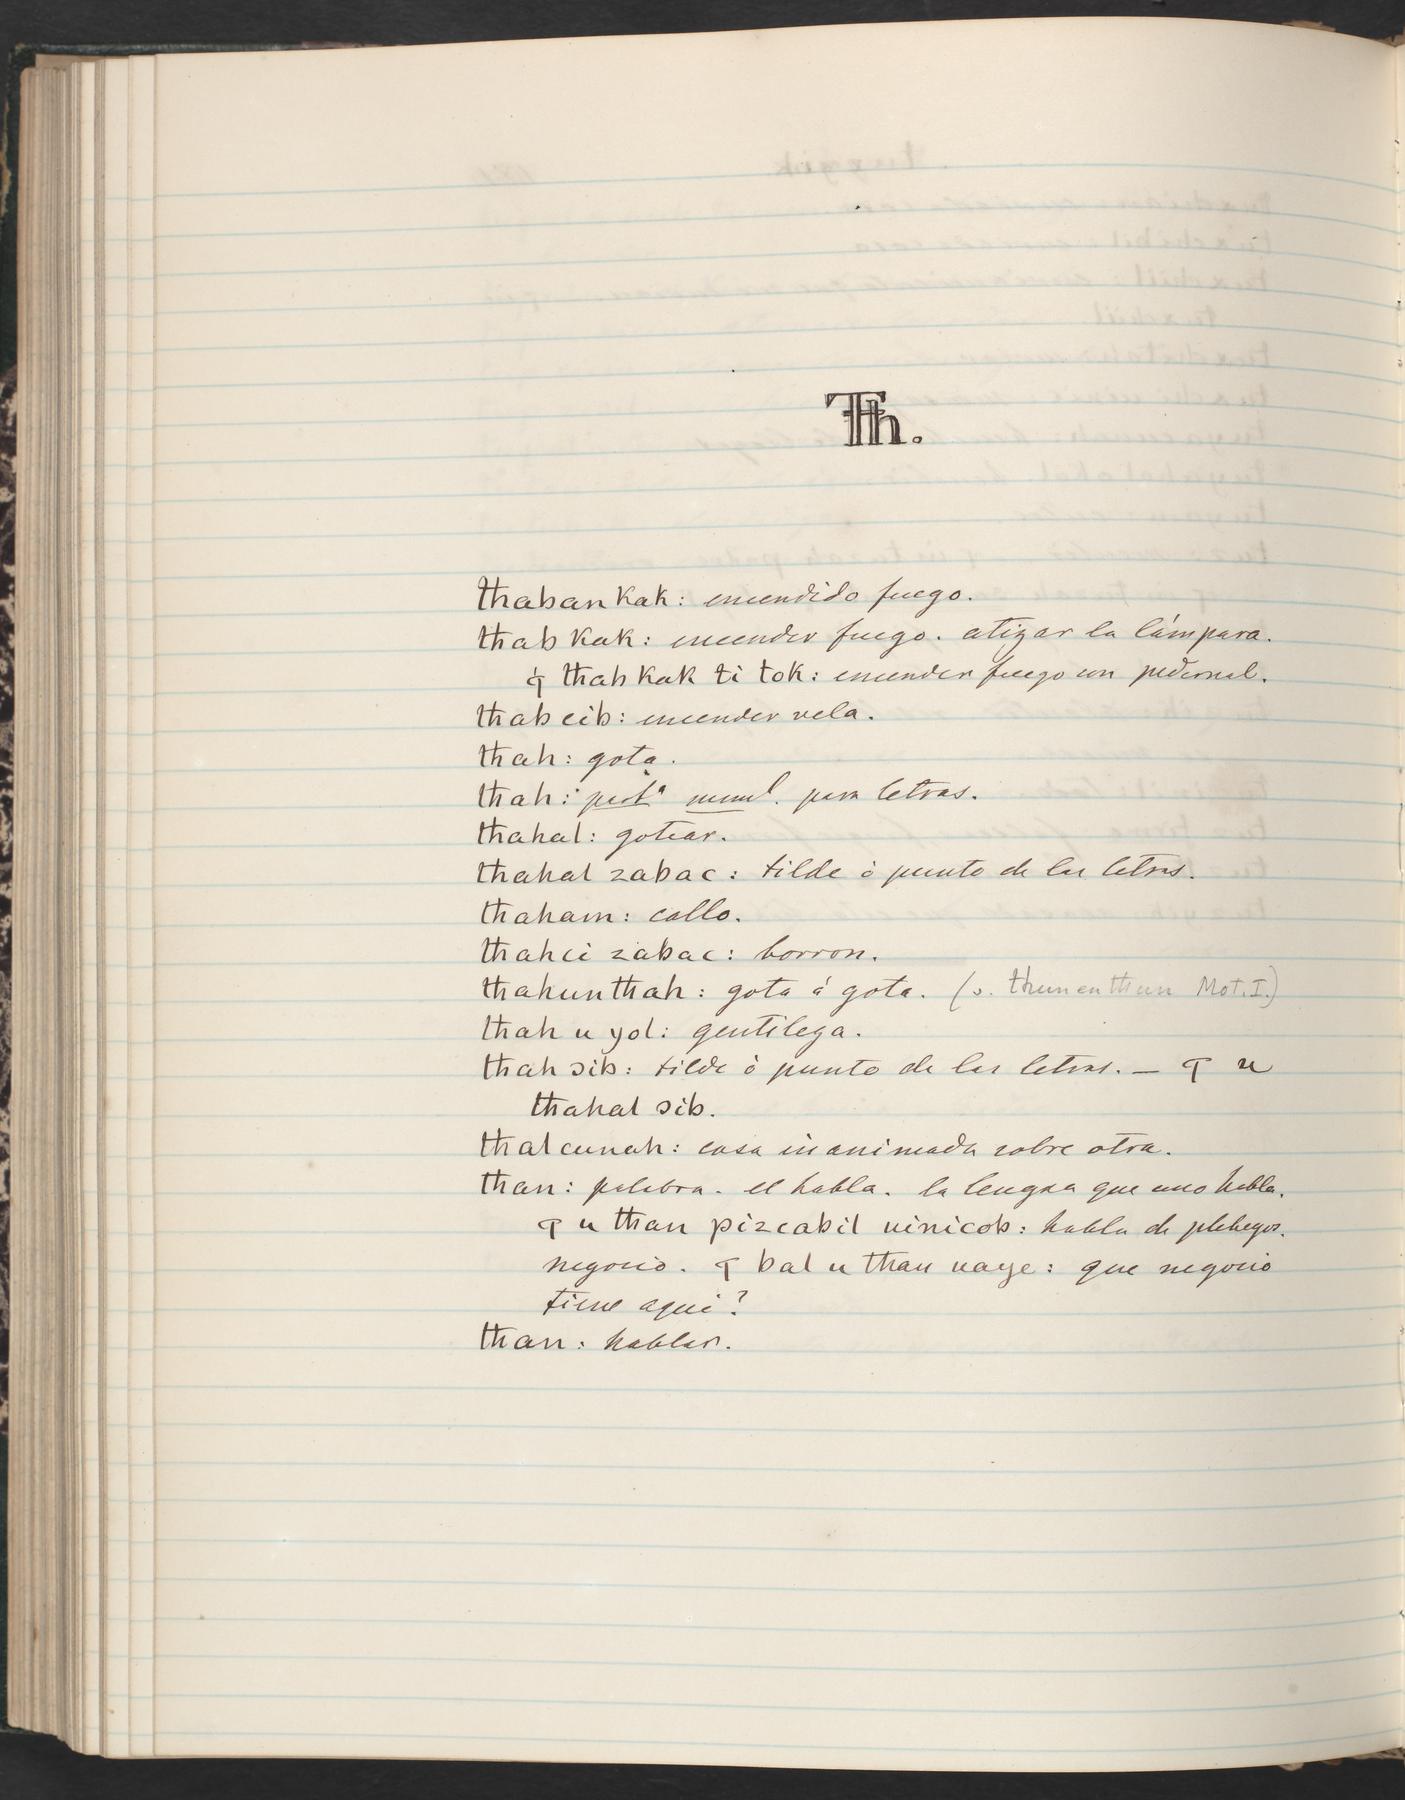 Th.
thaban kak: encendido fuego.
thab kak: encender fuego. atizar la lámpara.
¶ thab kak ti tok: encender fuego con pedernal.
thab cib: encender vela.
thah: gota.
thah: part.ª numl. para letras.
thahal: gotear.
thahal zabac: tilde ò punto de las letras.
thaham: callo.
thahci zabac: borron.
thahunthah: gota á gota. (v. thunenthun Mot. I.)
thah u yol: gentileza.
thah ɔib: tilde ò punto de las letras. — ¶ u
thahal ɔib.
thalcunah: cosa inanimada sobre otra.
than: palabra. el habla. la lengua que uno habla.
¶ u than pizcabil uinicob: habla de plebeyos.
negocio. ¶ bal u than uaye: que negocio
tiene aqui?
than: hablar.